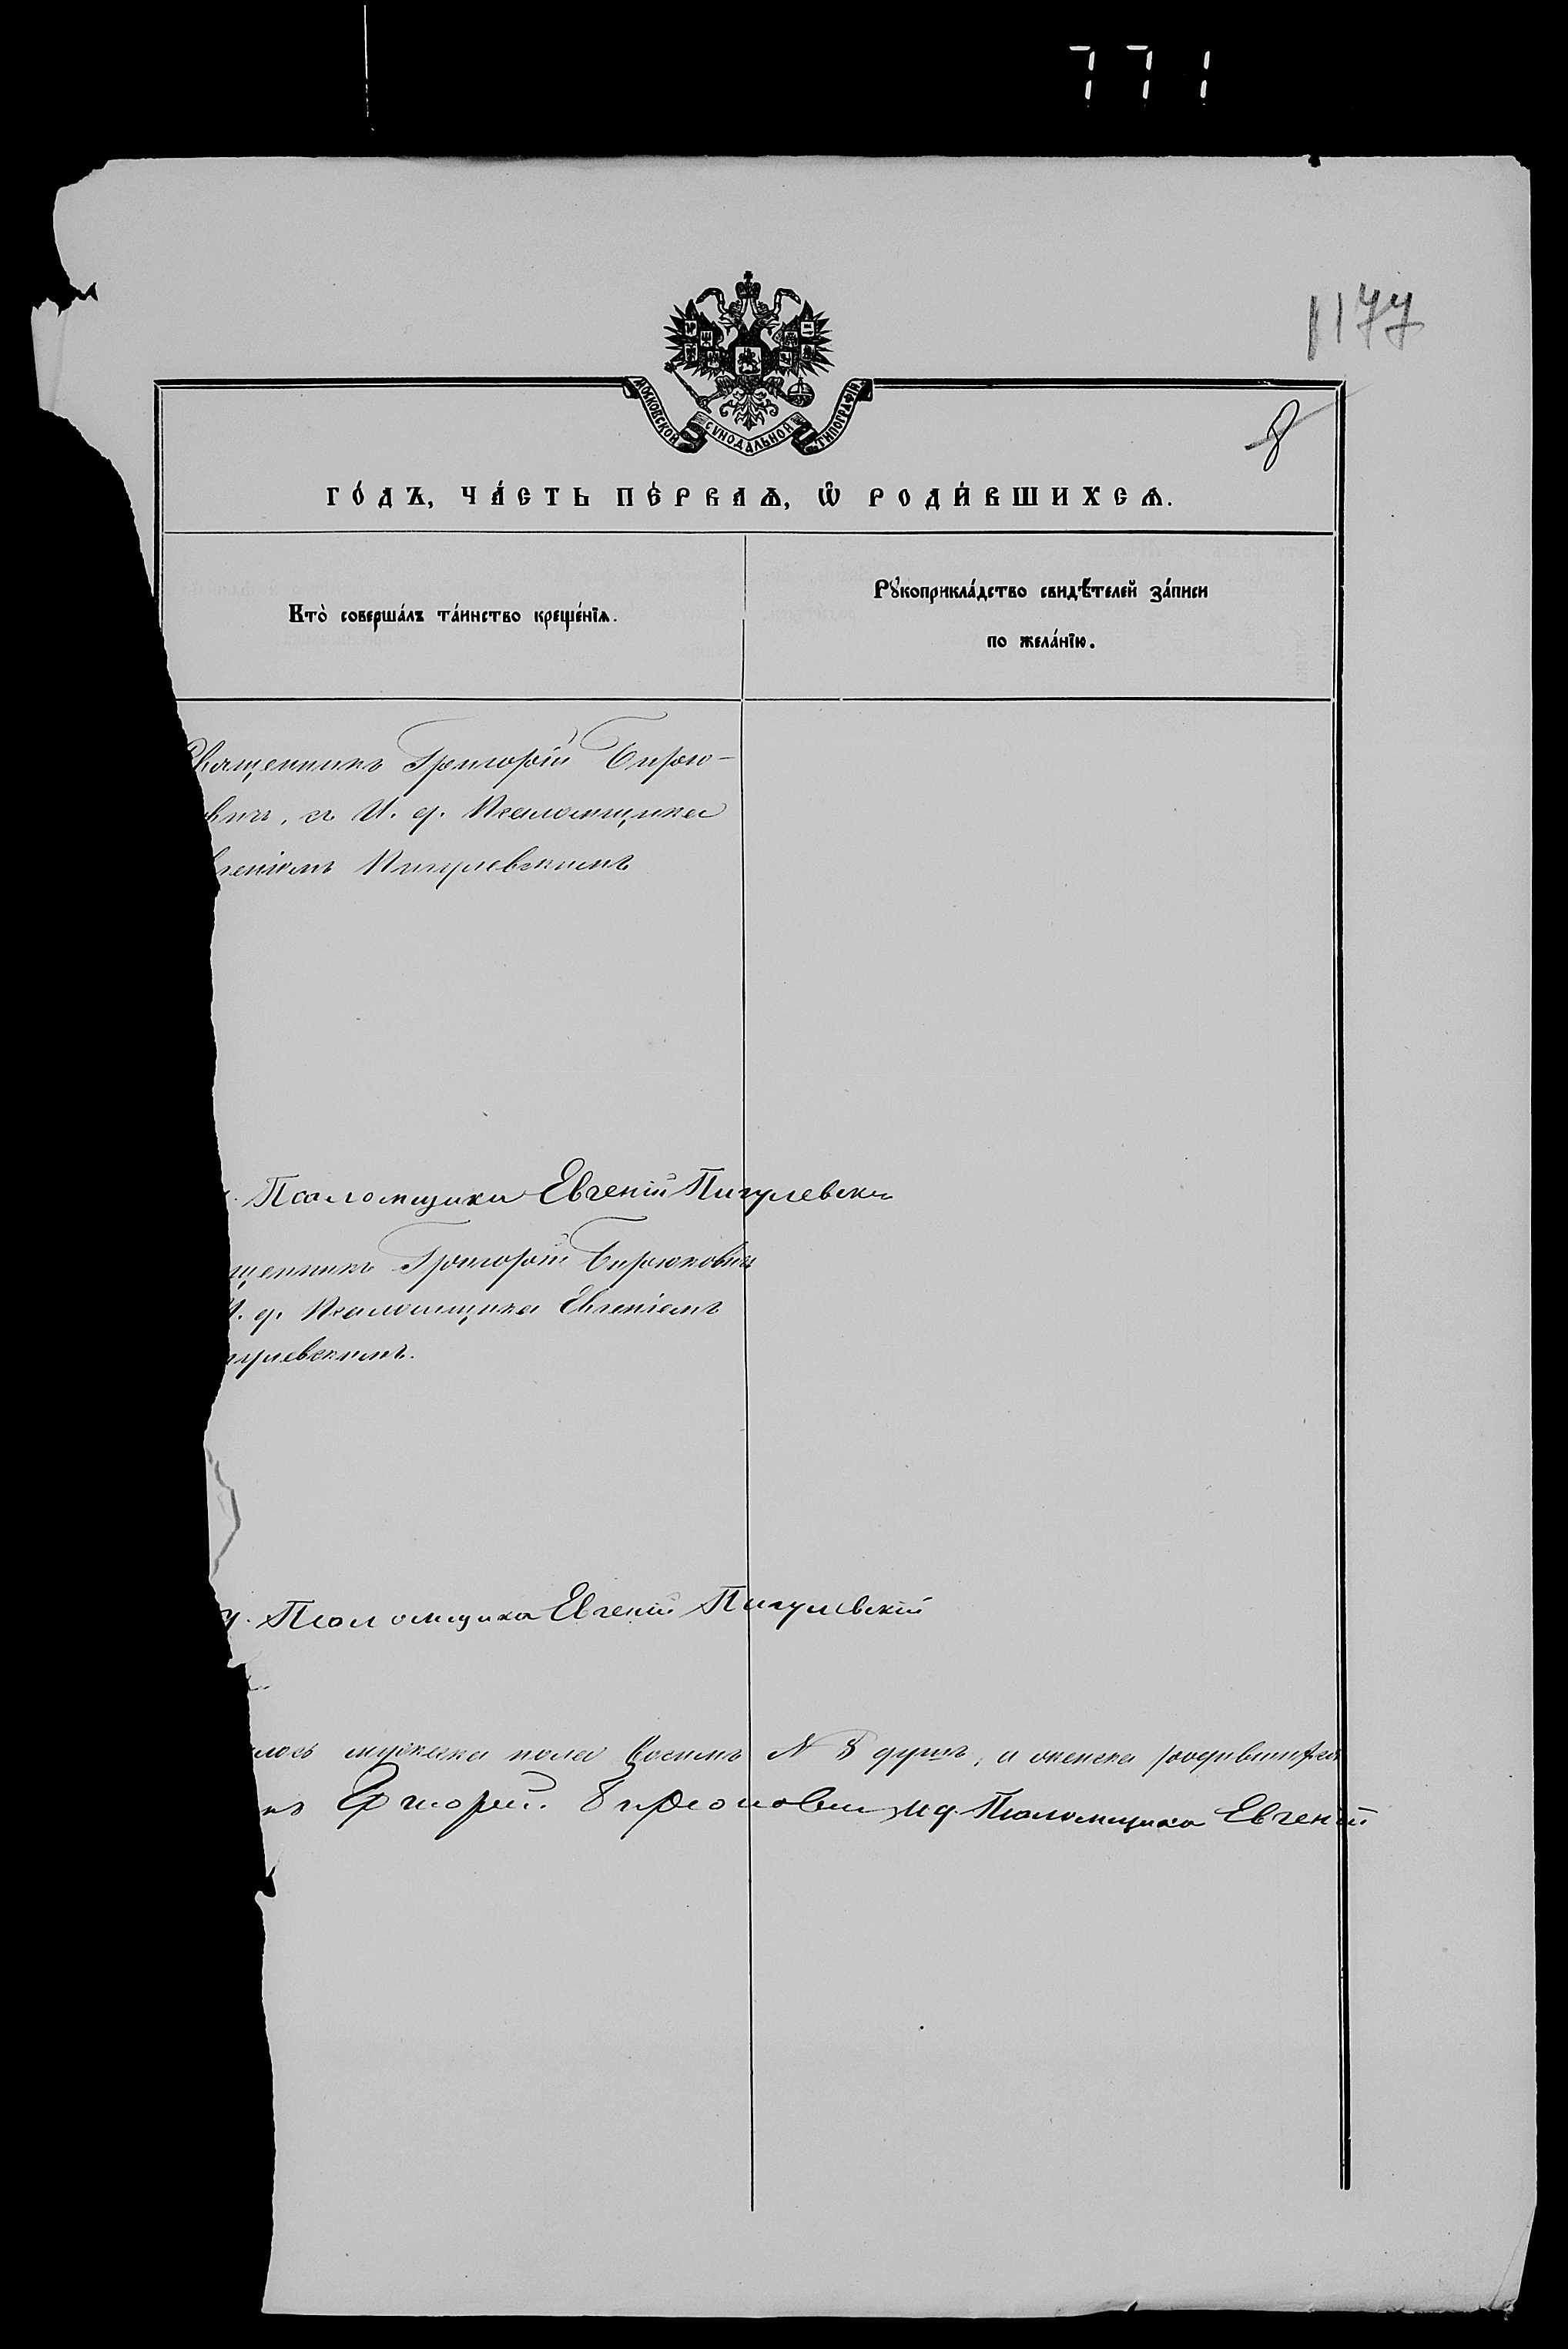 771
1177
МОСКОВСКОЙ СѴНОДАЛЬНОЙ ТИПОГРАФІИ
8
ГО́ДЪ, ЧА́СТЬ ПЕ́РВАѦ, Ѡ҆ РОДИ́ВШИХСѦ.
Кто̀ соверша́лъ та́инство креще́нїѧ.
Рꙋкоприкла́дство свидѣ́телей за́писи
по жела́нїю.
Священникъ Григорій Бирю-
вичъ, съ И. д. Псаломщика
вгеніемъ Пигулевскимъ
. Псаломщика Евгеній Пигулевскій
щенникъ Григорій Бирюковичъ
И. д. Псаломщика Евгеніемъ
гулевскимъ.
д. Псаломщика Евгеній Пигулевскій
лось мужеска пола восемь № 8 душъ, а женска родившихся
къ Григорій Бирюковичъ, И д. Псаломщика Евгеній